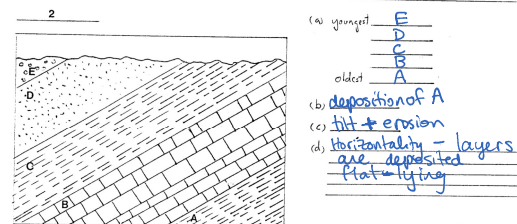 2
E
D
C
B
A
(a) youngest E
D
C
B
oldest A
(b) deposition of A
(c) tilt + erosion
(d) Horizontality - layers
are deposited
flat-lying